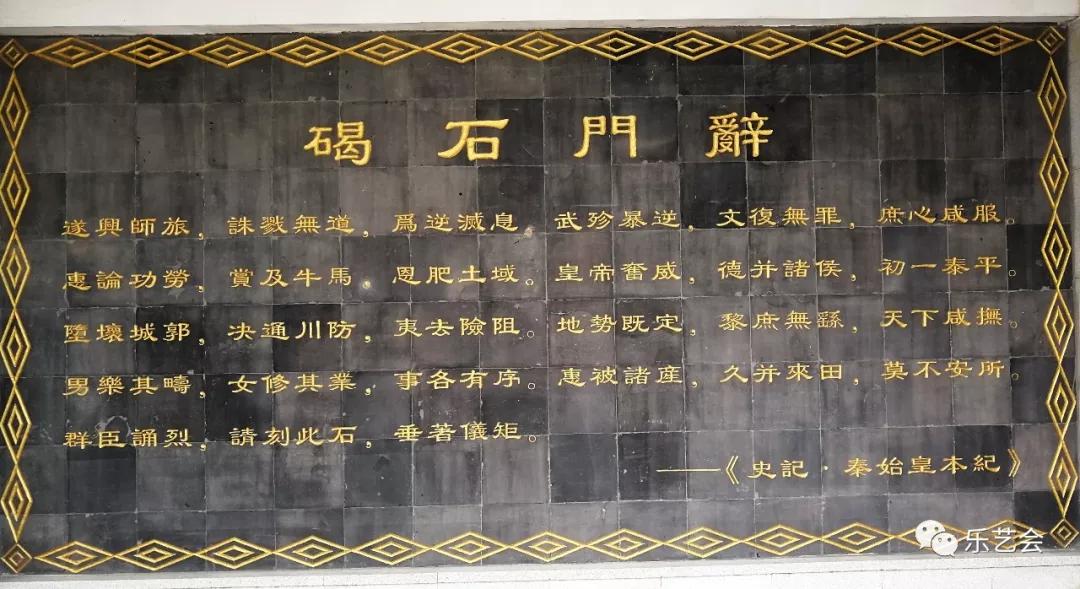 碣石門辭
遂興師旅，誅戮無道，爲逆滅息。武殄暴逆，文復無罪，庶心咸服。
惠論功勞，賞及牛馬，恩肥土域。皇帝奮威，德并諸侯，初一泰平。
墮壞城郭，决通川防，夷去險阻。地勢既定，黎庶無繇，天下咸撫。
男樂其疇，女修其業，事各有序。惠被諸產，久并來田，莫不安所。
群臣誦烈，請刻此石，垂著儀矩。
——《史記·秦始皇本紀》
乐艺会